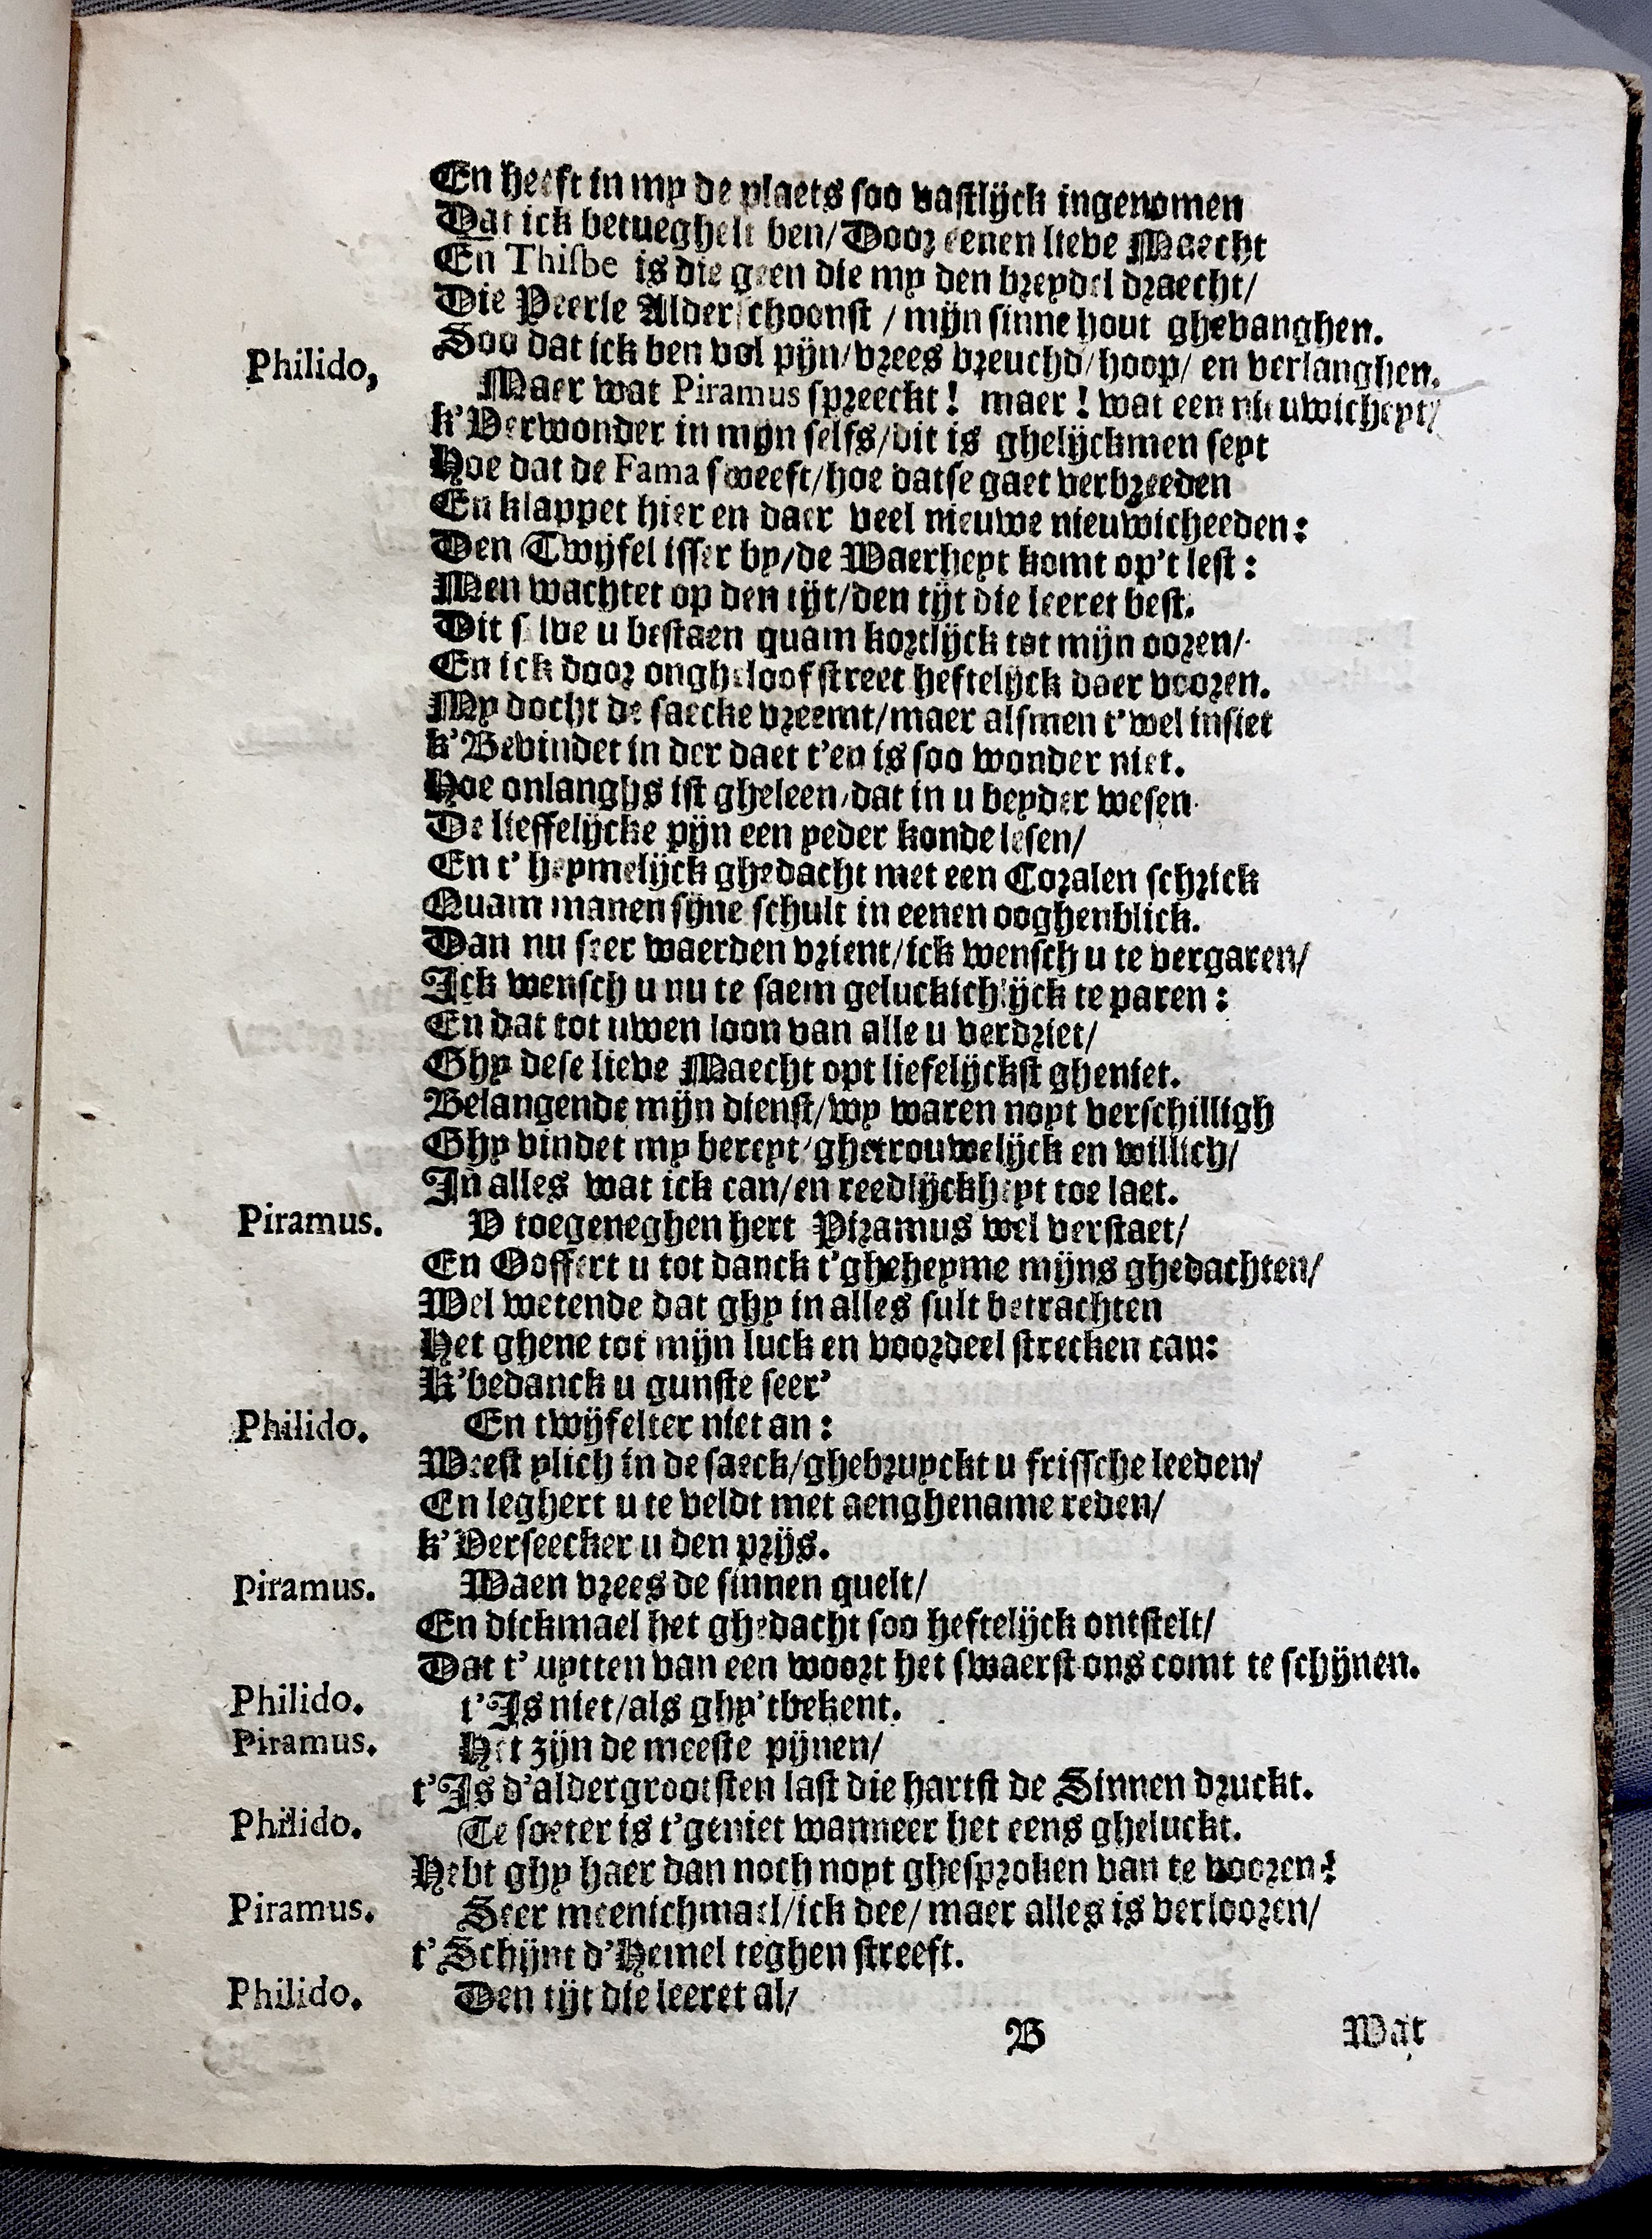 En heeft in my de plaets soo vastlijck ingenomen
Dat ick betueghelt ben/Door eenen lieve Maecht
En Thisbe is die geen die my den breydel draecht/
Die Peerle Alderschoonst / mijn sinne hout ghevanghen.
Soo dat ick ben vol pijn/vrees vreuchd/hoop/ en verlanghen.
Philido, Maer wat Piramus spreeckt! maer! wat een nieuwicheyt/
k'Verwonder in mijn selfs/dit is ghelijckmen seyt
Hoe dat de Fama sweeft/hoe datse gaet verbreeden
En klappet hier en daer veel nieuwe nieuwicheeden:
Den Twijfel isser by/de Waerheyt komt op't lest:
Men wachtet op den tijt/den tijt die leeret best.
Dit selve u bestaen quam kortlijck tot mijn ooren/
En ick door ongheloof street heftelijck daer vooren.
My docht de saecke vreemt/maer alsmen t'wel insiet
k'Bevindet in der daet t'en is soo wonder niet.
Hoe onlanghs ist gheleen/dat in u beyder wesen
De lieffelijcke pijn een yeder konde lesen/
En t' heymelijck ghedacht met een Coralen schrick
Quam manen sijne schult in eenen ooghenblick.
Dan nu seer waerden vrient/ick wensch u te vergaren/
Ick wensch u nu te saem geluckichlijck te paren:
En dat tot uwen loon van alle u verdriet/
Ghy dese lieve Maecht opt liefelijckst gheniet.
Belangende mijn dienst/wy waren noyt verschilligh
Ghy vindet my bereyt/ghetrouwelijck en willich/
In alles wat ick can/en reedlijckheyt toe laet.
Piramus. V toegeneghen hert Piramus wel verstaet/
En Ooffert u tot danck t'gheheyme mijns ghedachten/
Wel wetende dat ghy in alles sult betrachten
Het ghene tot mijn luck en voordeel strecken can:
K'bedanck u gunste seer'
Philido. En twijfelter niet an:
Weest vlich in de saeck/ghebruyckt u frissche leeden/
En leghert u te veldt met aenghename reden/
k'Verseecker u den prijs.
Piramus. Waen vrees de sinnen quelt/
En dickmael het ghedacht soo heftelijck ontstelt/
Dat t' uytten van een woort het swaerst ons comt te schijnen.
Philido. t'Is niet/als ghy'tbekent.
Piramus. Het zijn de meeste pijnen/
t'Is d'aldergrootsten last die hartst de Sinnen druckt.
Philido. Te soeter is t'geniet wanneer het eens gheluckt.
Hebt ghy haer dan noch noyt ghesproken van te vooren?
Piramus. Seer meenichmael/ick dee/ maer alles is verlooren/
t'Schijnt d'Hemel teghen streeft.
Philido. Den tijt die leeret al/
B Wat